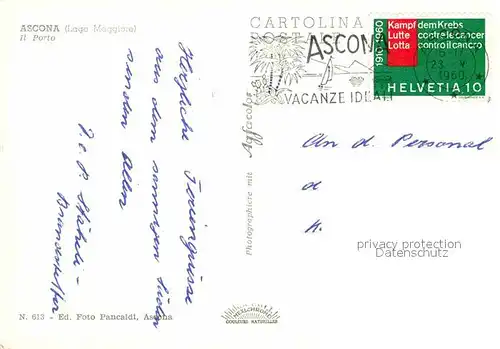 ASCONA (Lago Maggiore)
Il Porto
CARTOLINA
POSTALE
ASCONA
VACANZE IDEALI
23. V
1960
1910 1960
Kampf dem Krebs
Lutte contre le cancer
Lotta contro il cancro
HELVETIA 10
Herzliche Feriengrüsse
aus dem sonnigen Süden
senden Allen
Photographiere mit Agfacolor
An d. Personal
d
privacy protection
Datenschutz
HELIOCHROME
COULEURS NATURELLES
N. 613 - Ed. Foto Pancaldi, Ascona